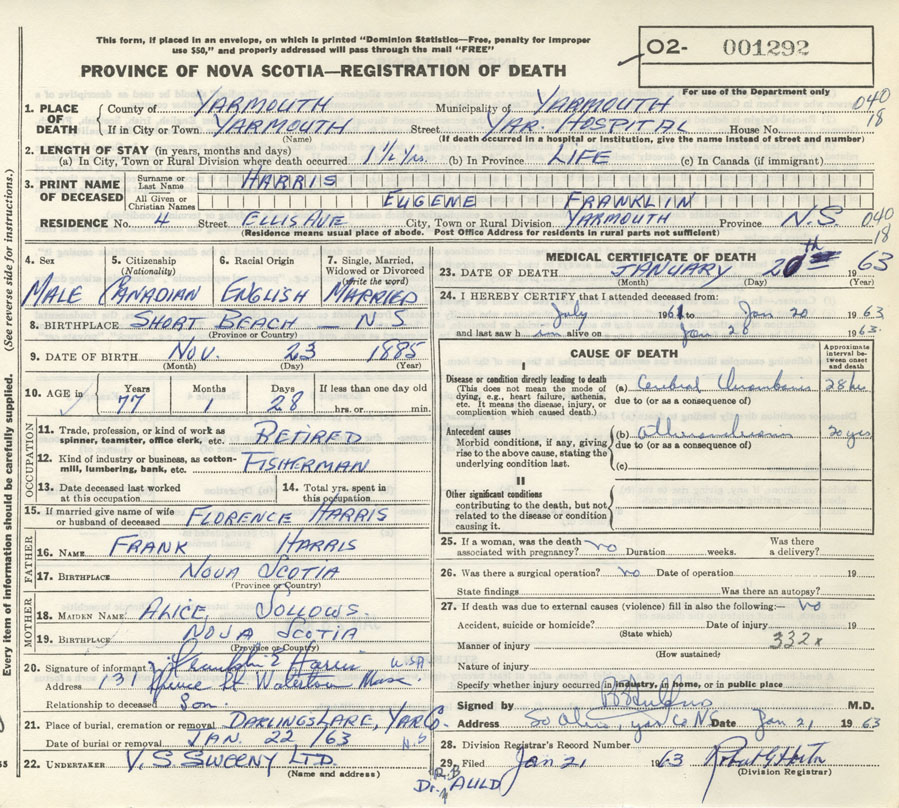 This form, if placed in an envelope, on which is printed "Dominion Statistics—Free, penalty for improper
use $50," and properly addressed will pass through the mail "FREE"
PROVINCE OF NOVA SCOTIA—REGISTRATION OF DEATH
02- 001292
For use of the Department only
1. PLACE OF DEATH County of YARMOUTH Municipality of YARMOUTH 040
If in City or Town YARMOUTH Street YAR. HOSPITAL House No. 18
(Name) (If death occurred in a hospital or institution, give the name instead of street and number)
2. LENGTH OF STAY (in years, months and days)
(a) In City, Town or Rural Division where death occurred 1 1/2 Yrs. (b) In Province LIFE (c) In Canada (if immigrant)
3. PRINT NAME OF DECEASED Surname or Last Name HARRIS
All Given or Christian Names EUGENE FRANKLIN
RESIDENCE No. 4 Street ELLIS AVE City, Town or Rural Division YARMOUTH Province N.S. 040
(Residence means usual place of abode. Post Office Address for residents in rural parts not sufficient) 18
(See reverse side for instructions.)
Every item of information should be carefully supplied.
4. Sex MALE
5. Citizenship (Nationality) CANADIAN
6. Racial Origin ENGLISH
7. Single, Married, Widowed or Divorced (write the word) MARRIED
8. BIRTHPLACE SHORT BEACH — N.S
(Province or Country)
9. DATE OF BIRTH NOV. 23 1885
(Month) (Day) (Year)
10. AGE in Years 77 Months 1 Days 28 If less than one day old hrs. or min.
OCCUPATION
11. Trade, profession, or kind of work as spinner, teamster, office clerk, etc. RETIRED
12. Kind of industry or business, as cotton-mill, lumbering, bank, etc. FISHERMAN
13. Date deceased last worked at this occupation
14. Total yrs. spent in this occupation
15. If married give name of wife or husband of deceased FLORENCE HARRIS
FATHER
16. NAME FRANK HARRIS
17. BIRTHPLACE NOVA SCOTIA
(Province or Country)
MOTHER
18. MAIDEN NAME ALICE SOLLOWS.
19. BIRTHPLACE NOVA SCOTIA
(Province or Country)
20. Signature of informant Franklin E Harris USA
Address 131 St Watertown Mass.
Relationship to deceased Son.
21. Place of burial, cremation or removal DARLINGS LAKE, YAR Co.
Date of burial or removal JAN. 22 /63 N.S
22. UNDERTAKER V. S. SWEENY LTD.
(Name and address)
MEDICAL CERTIFICATE OF DEATH
23. DATE OF DEATH JANUARY 20th 1963
(Month) (Day) (Year)
24. I HEREBY CERTIFY that I attended deceased from:
July 1961 to Jan 20 1963
and last saw him alive on Jan 20 1963.
CAUSE OF DEATH
Approximate interval between onset and death
I
Disease or condition directly leading to death
(This does not mean the mode of dying, e.g., heart failure, asthenia, etc. It means the disease, injury, or complication which caused death.)
(a) Cerebral Thrombosis 28 hrs
due to (or as a consequence of)
Antecedent causes
Morbid conditions, if any, giving rise to the above cause, stating the underlying condition last.
(b) Atherosclerosis 20 yrs
due to (or as a consequence of)
(c)
II
Other significant conditions
contributing to the death, but not related to the disease or condition causing it.
25. If a woman, was the death associated with pregnancy? no Duration weeks. Was there a delivery?
26. Was there a surgical operation? no Date of operation 19
State findings Was there an autopsy?
27. If death was due to external causes (violence) fill in also the following:— no
Accident, suicide or homicide? Date of injury 19
(State which)
Manner of injury 332x
(How sustained)
Nature of injury
Specify whether injury occurred in industry, in home, or in public place
Signed by M.D.
Address So Ohio, Yar Co NS Date Jan 21 1963
28. Division Registrar's Record Number
29. Filed Jan 21 1963
(Division Registrar)
Dr. R.B. AULD